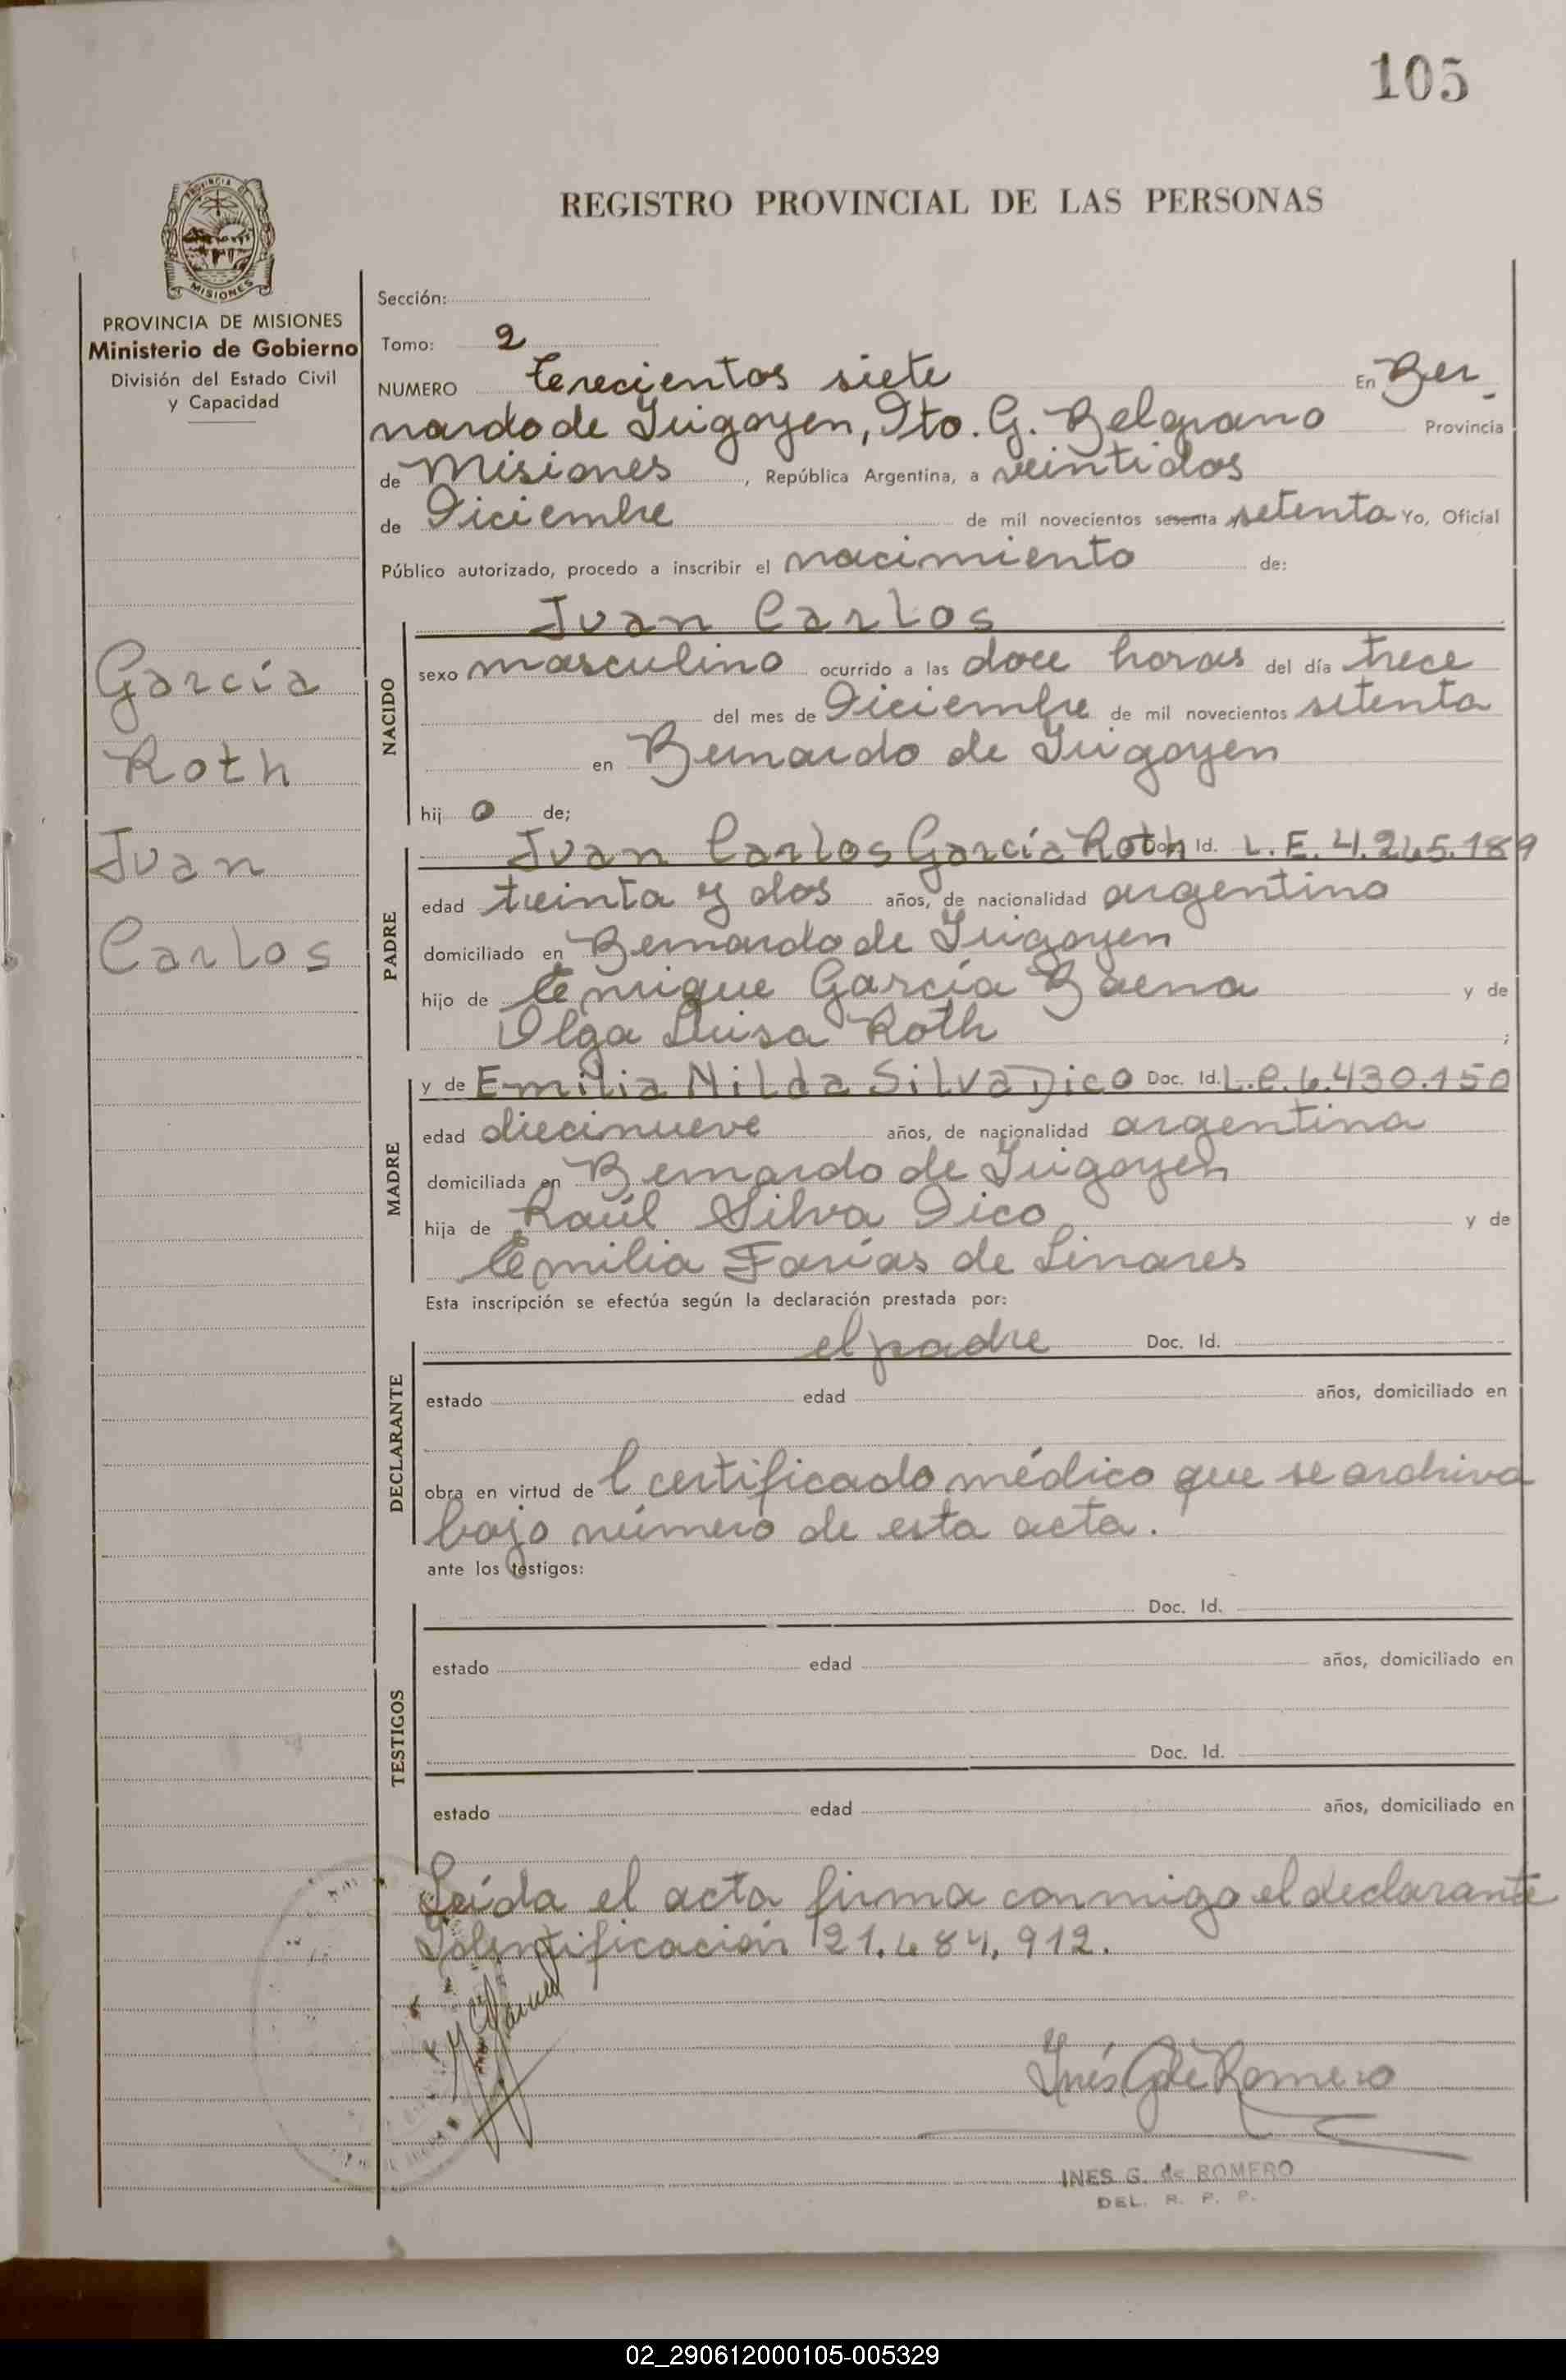 105
REGISTRO PROVINCIAL DE LAS PERSONAS
PROVINCIA DE
MISIONES
PROVINCIA DE MISIONES
Ministerio de Gobierno
División del Estado Civil
y Capacidad
García
Roth
Juan
Carlos
Sección:
Tomo: 2
NUMERO Trecientos siete En Ber-
nardo de Irigoyen, Dto. G. Belgrano Provincia
de Misiones, República Argentina, a veintidos
de Diciembre de mil novecientos sesenta setenta Yo, Oficial
Público autorizado, procedo a inscribir el nacimiento de:
NACIDO
Juan Carlos
sexo masculino ocurrido a las doce horas del día trece
del mes de Diciembre de mil novecientos setenta
en Bernardo de Irigoyen
hij o de;
PADRE
Juan Carlos García Roth Doc. Id. L.E. 4.265.189
edad treinta y dos años, de nacionalidad argentino
domiciliado en Bernardo de Irigoyen
hijo de Enrique García Baena y de
Olga Luisa Roth ;
MADRE
y de Emilia Nilda Silva Dico Doc. Id. L.C. 6.430.150
edad diecinueve años, de nacionalidad argentina
domiciliada en Bernardo de Irigoyen
hija de Raúl Silva Dico y de
Emilia Farías de Linares
Esta inscripción se efectúa según la declaración prestada por:
DECLARANTE
el padre Doc. Id.
estado edad años, domiciliado en
obra en virtud de l certificado médico que se archiva
bajo número de esta acta.
ante los testigos:
TESTIGOS
Doc. Id.
estado edad años, domiciliado en
Doc. Id.
estado edad años, domiciliado en
Leída el acta firma conmigo el declarante
Identificación 21.684.912.
Inés G de Romero
INES G. de ROMERO
DEL. R. P. P.
02_290612000105-005329